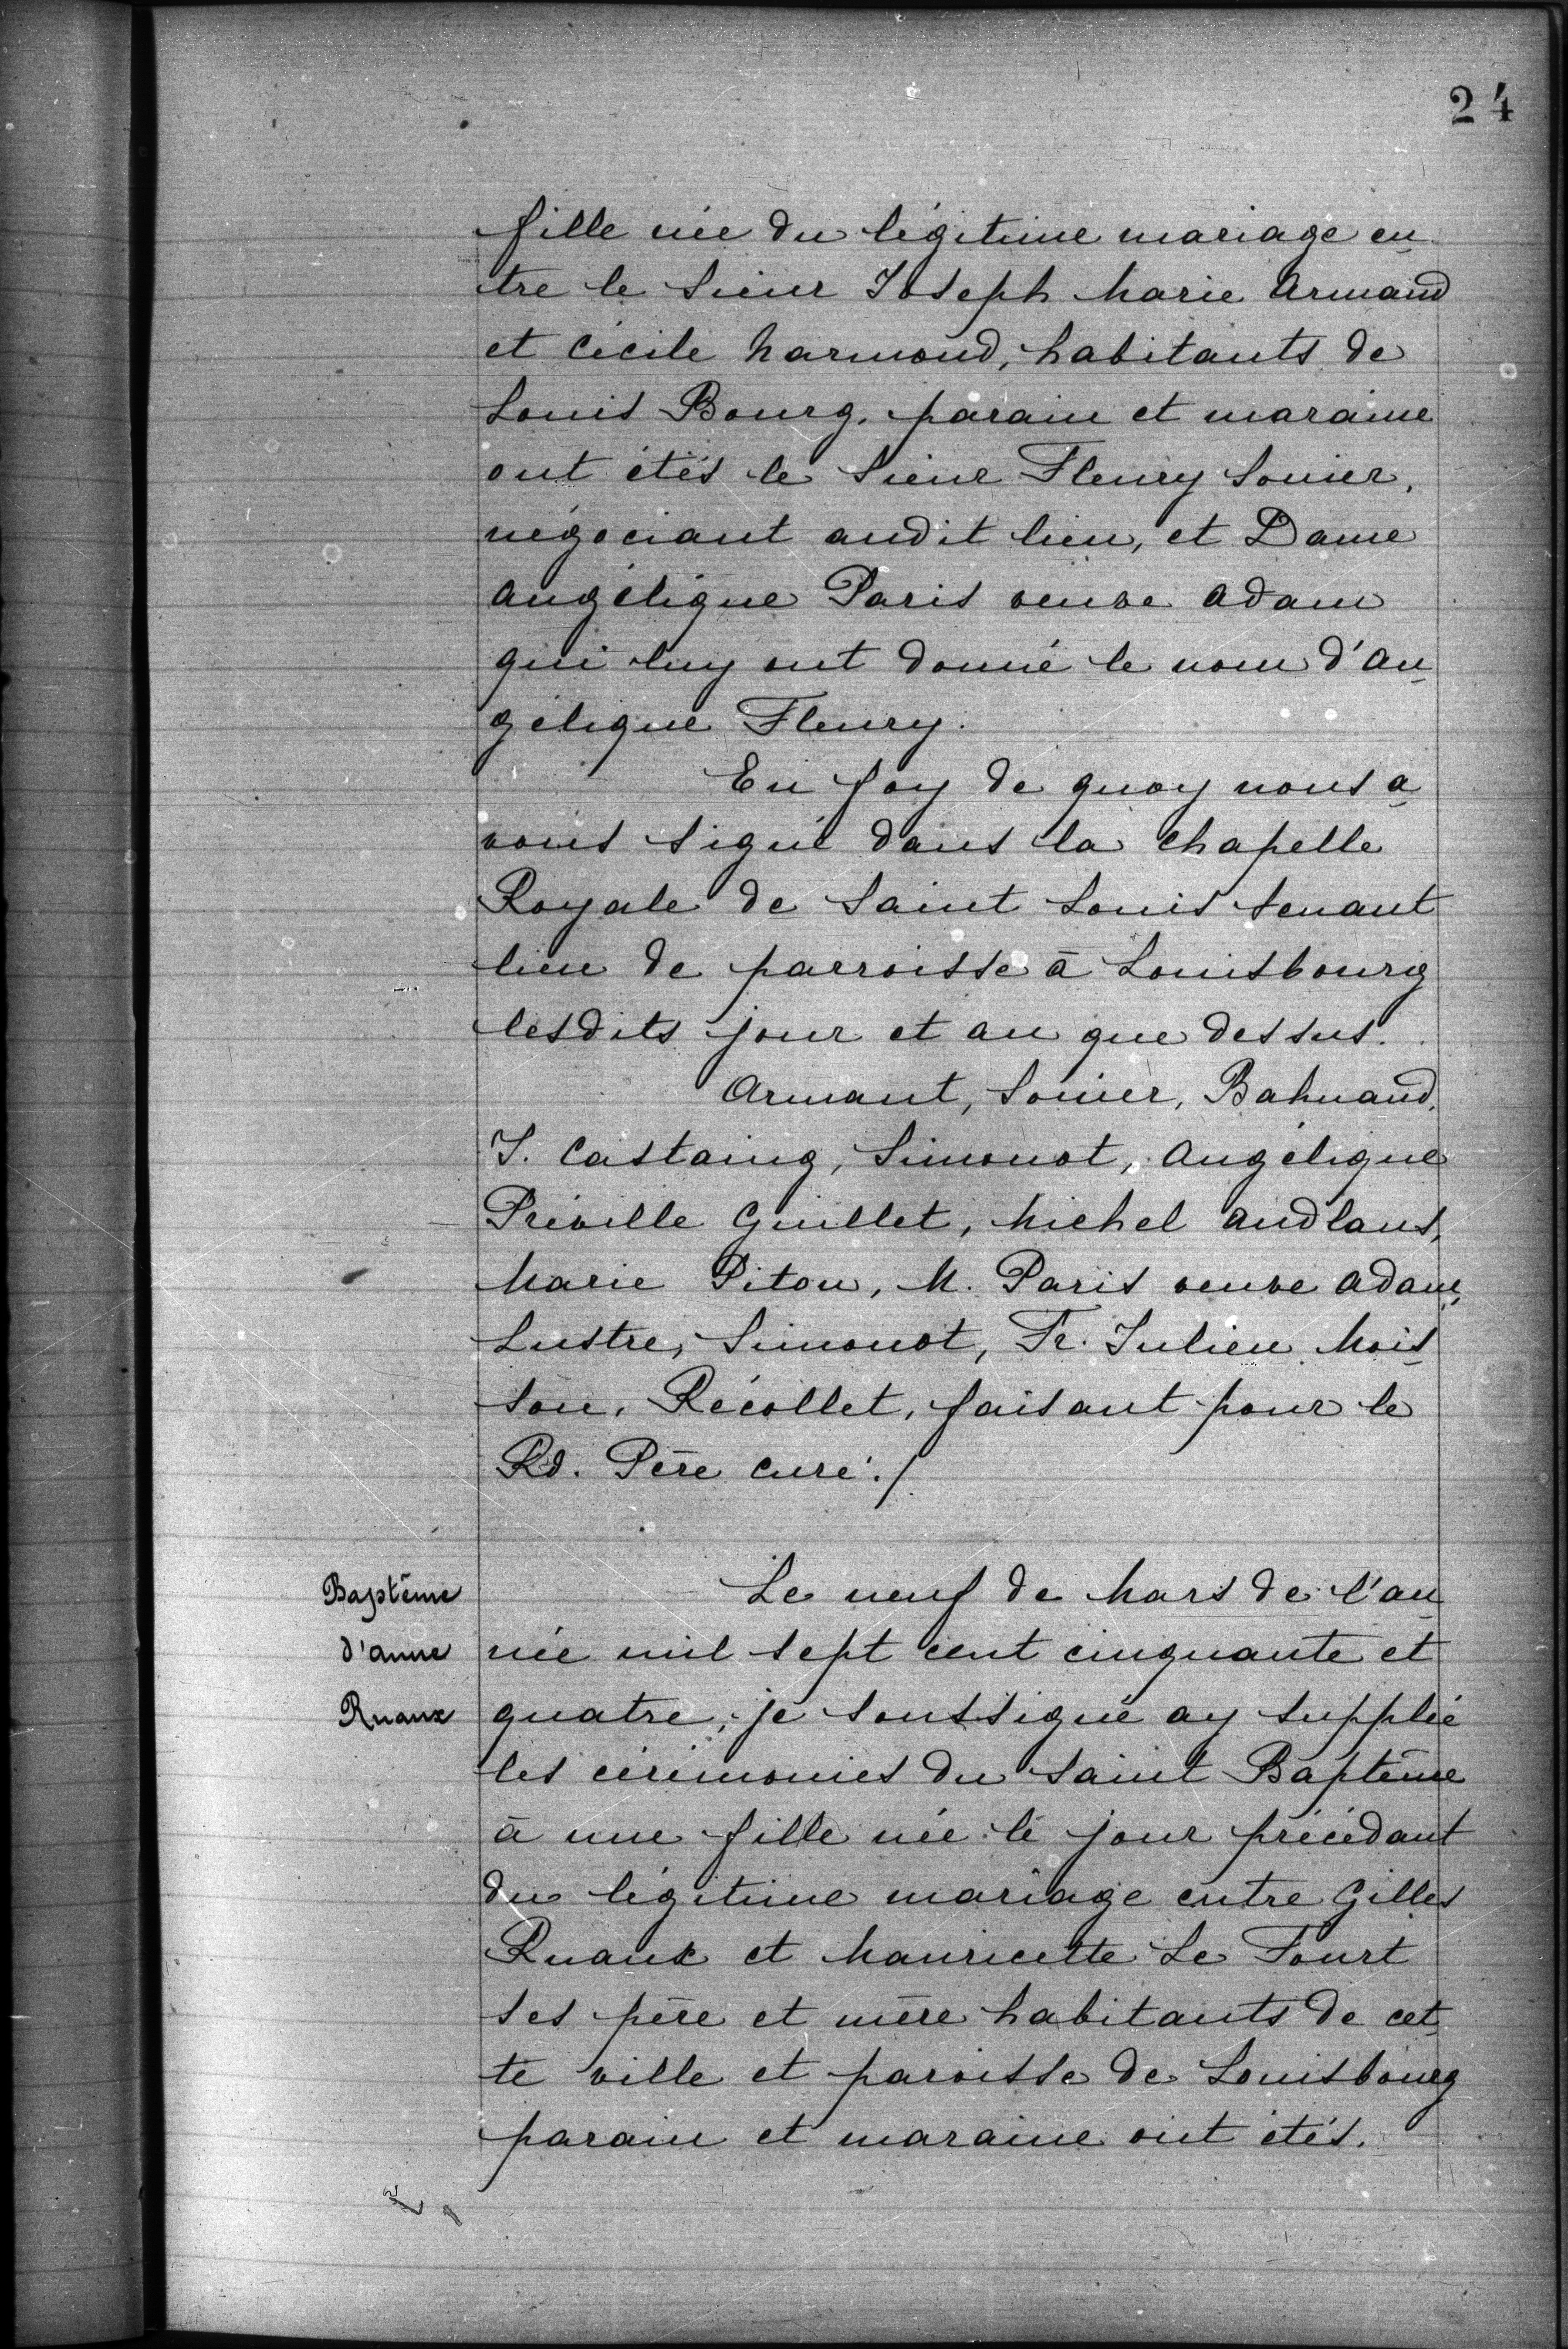 24
fille née du légitime mariage en
tre le Sieur Joseph Marie Armand
et Cécile Harmond, habitants de
Louis Bourg. parain et maraine
ont étés le Sieur Fleury Sonier,
négociant audit lieu, et Dame
Angélique Paris veuve Adam
qui luy ont donné le nom d'An
gélique Fleury.
En foy de quoy nous a
vons signé dans la chapelle
Royale de Saint Louis servant
lieu de parroisse à Louisbourg
lesdits jour et an que dessus.
Armant, Sonier, Bahuaud,
J. Castaing, Simonot, Angélique
Préville Guillet, Michel Audlans,
Marie Pitou, M. Paris veuve Adam,
Lustre, Simonot, Fr. Julien Mois
son, Récollet, faisant pour le
Rd. Père curé./
Baptême
d'Anne
Ruaux
Le neuf de Mars de l'an
née mil sept cent cinquante et
quatre, je soussigné ay supplié
les cérémonies du Saint Baptême
à une fille née le jour précédant
du légitime mariage entre Gilles
Ruaux et Mauricette Le Tourt
ses père et mère habitants de cet
te ville et paroisse de Louisbourg
parain et maraine ont étés.